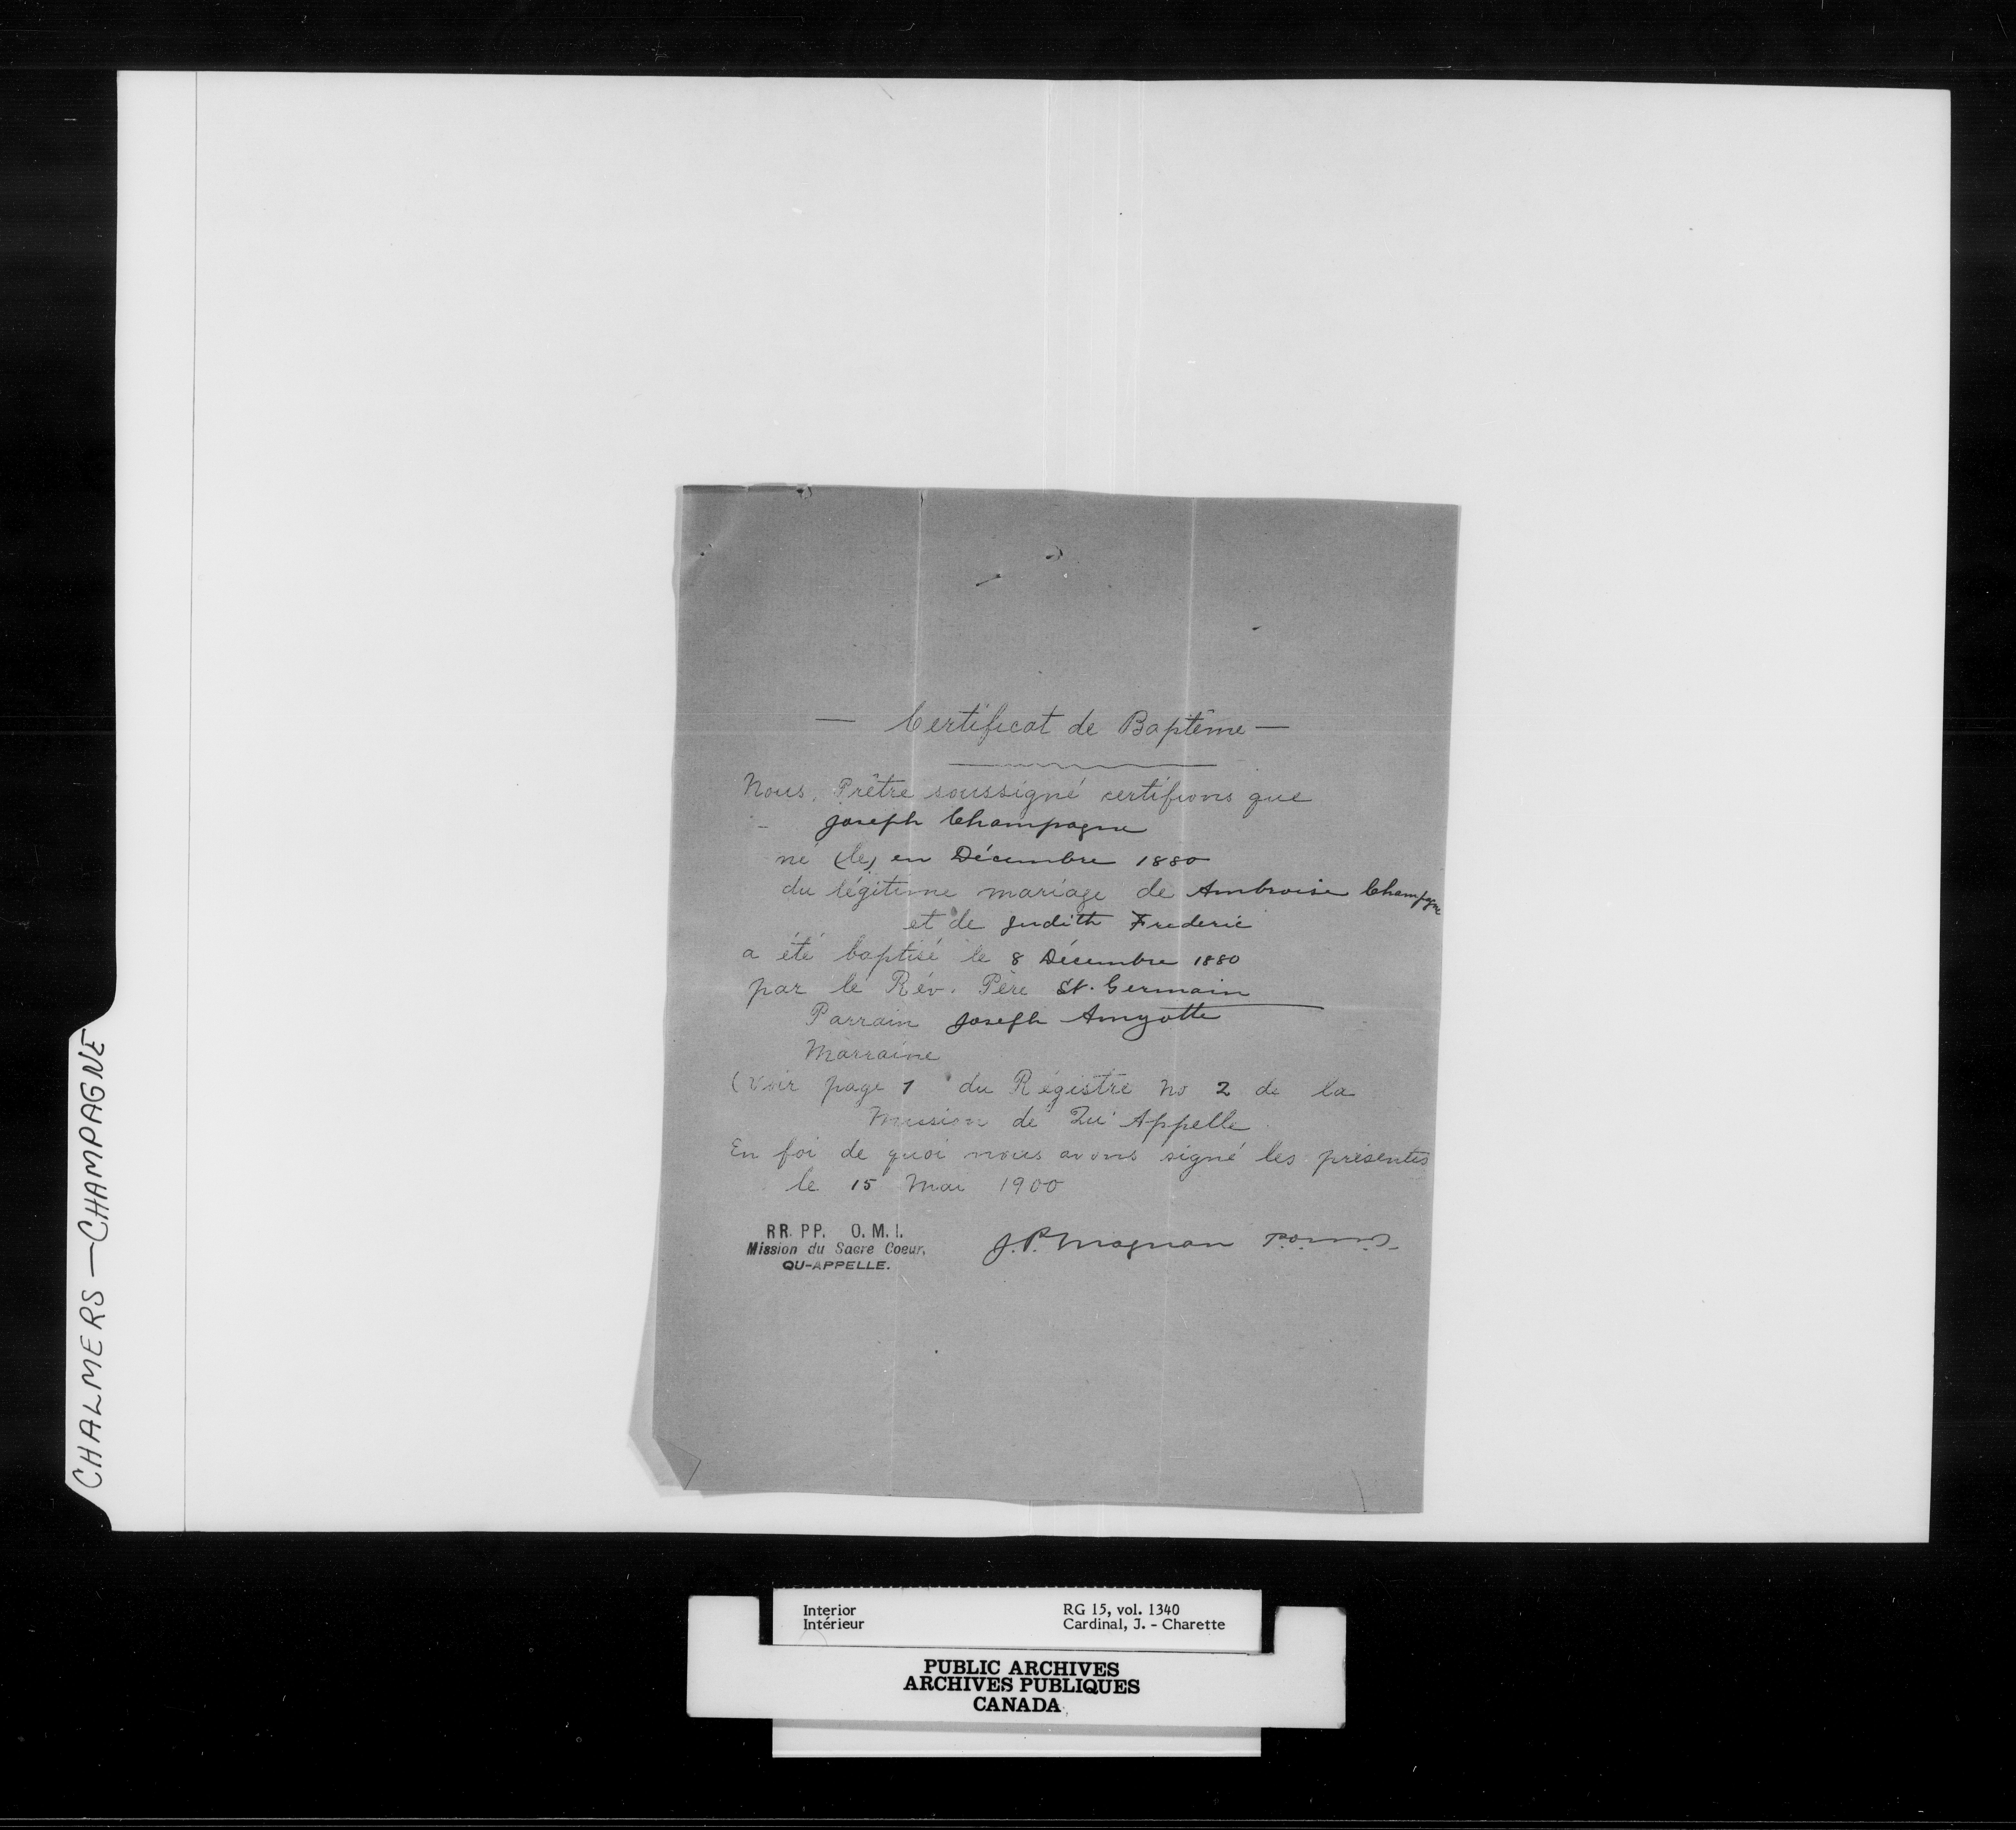 CHALMERS — CHAMPAGNE
— Certificat de Baptême —
Nous, Prêtre soussigné certifions que
Joseph Champagne
né (le) en Décembre 1880
du légitime mariage de Ambroise Champagne
et de Judith Frederic
a été baptisé le 8 Décembre 1880
par le Rév. Père St. Germain
Parrain Joseph Amyotte
Marraine
(Voir page 1 du Régistre No 2 de la
Mission de Qu'Appelle
En foi de quoi nous avons signé les présentes
le 15 Mai 1900
RR. PP. O. M. I.
Mission du Sacre Coeur,
QU-APPELLE.
J. P. Magnan
Interior
Intérieur
RG 15, vol. 1340
Cardinal, J. - Charette
PUBLIC ARCHIVES
ARCHIVES PUBLIQUES
CANADA